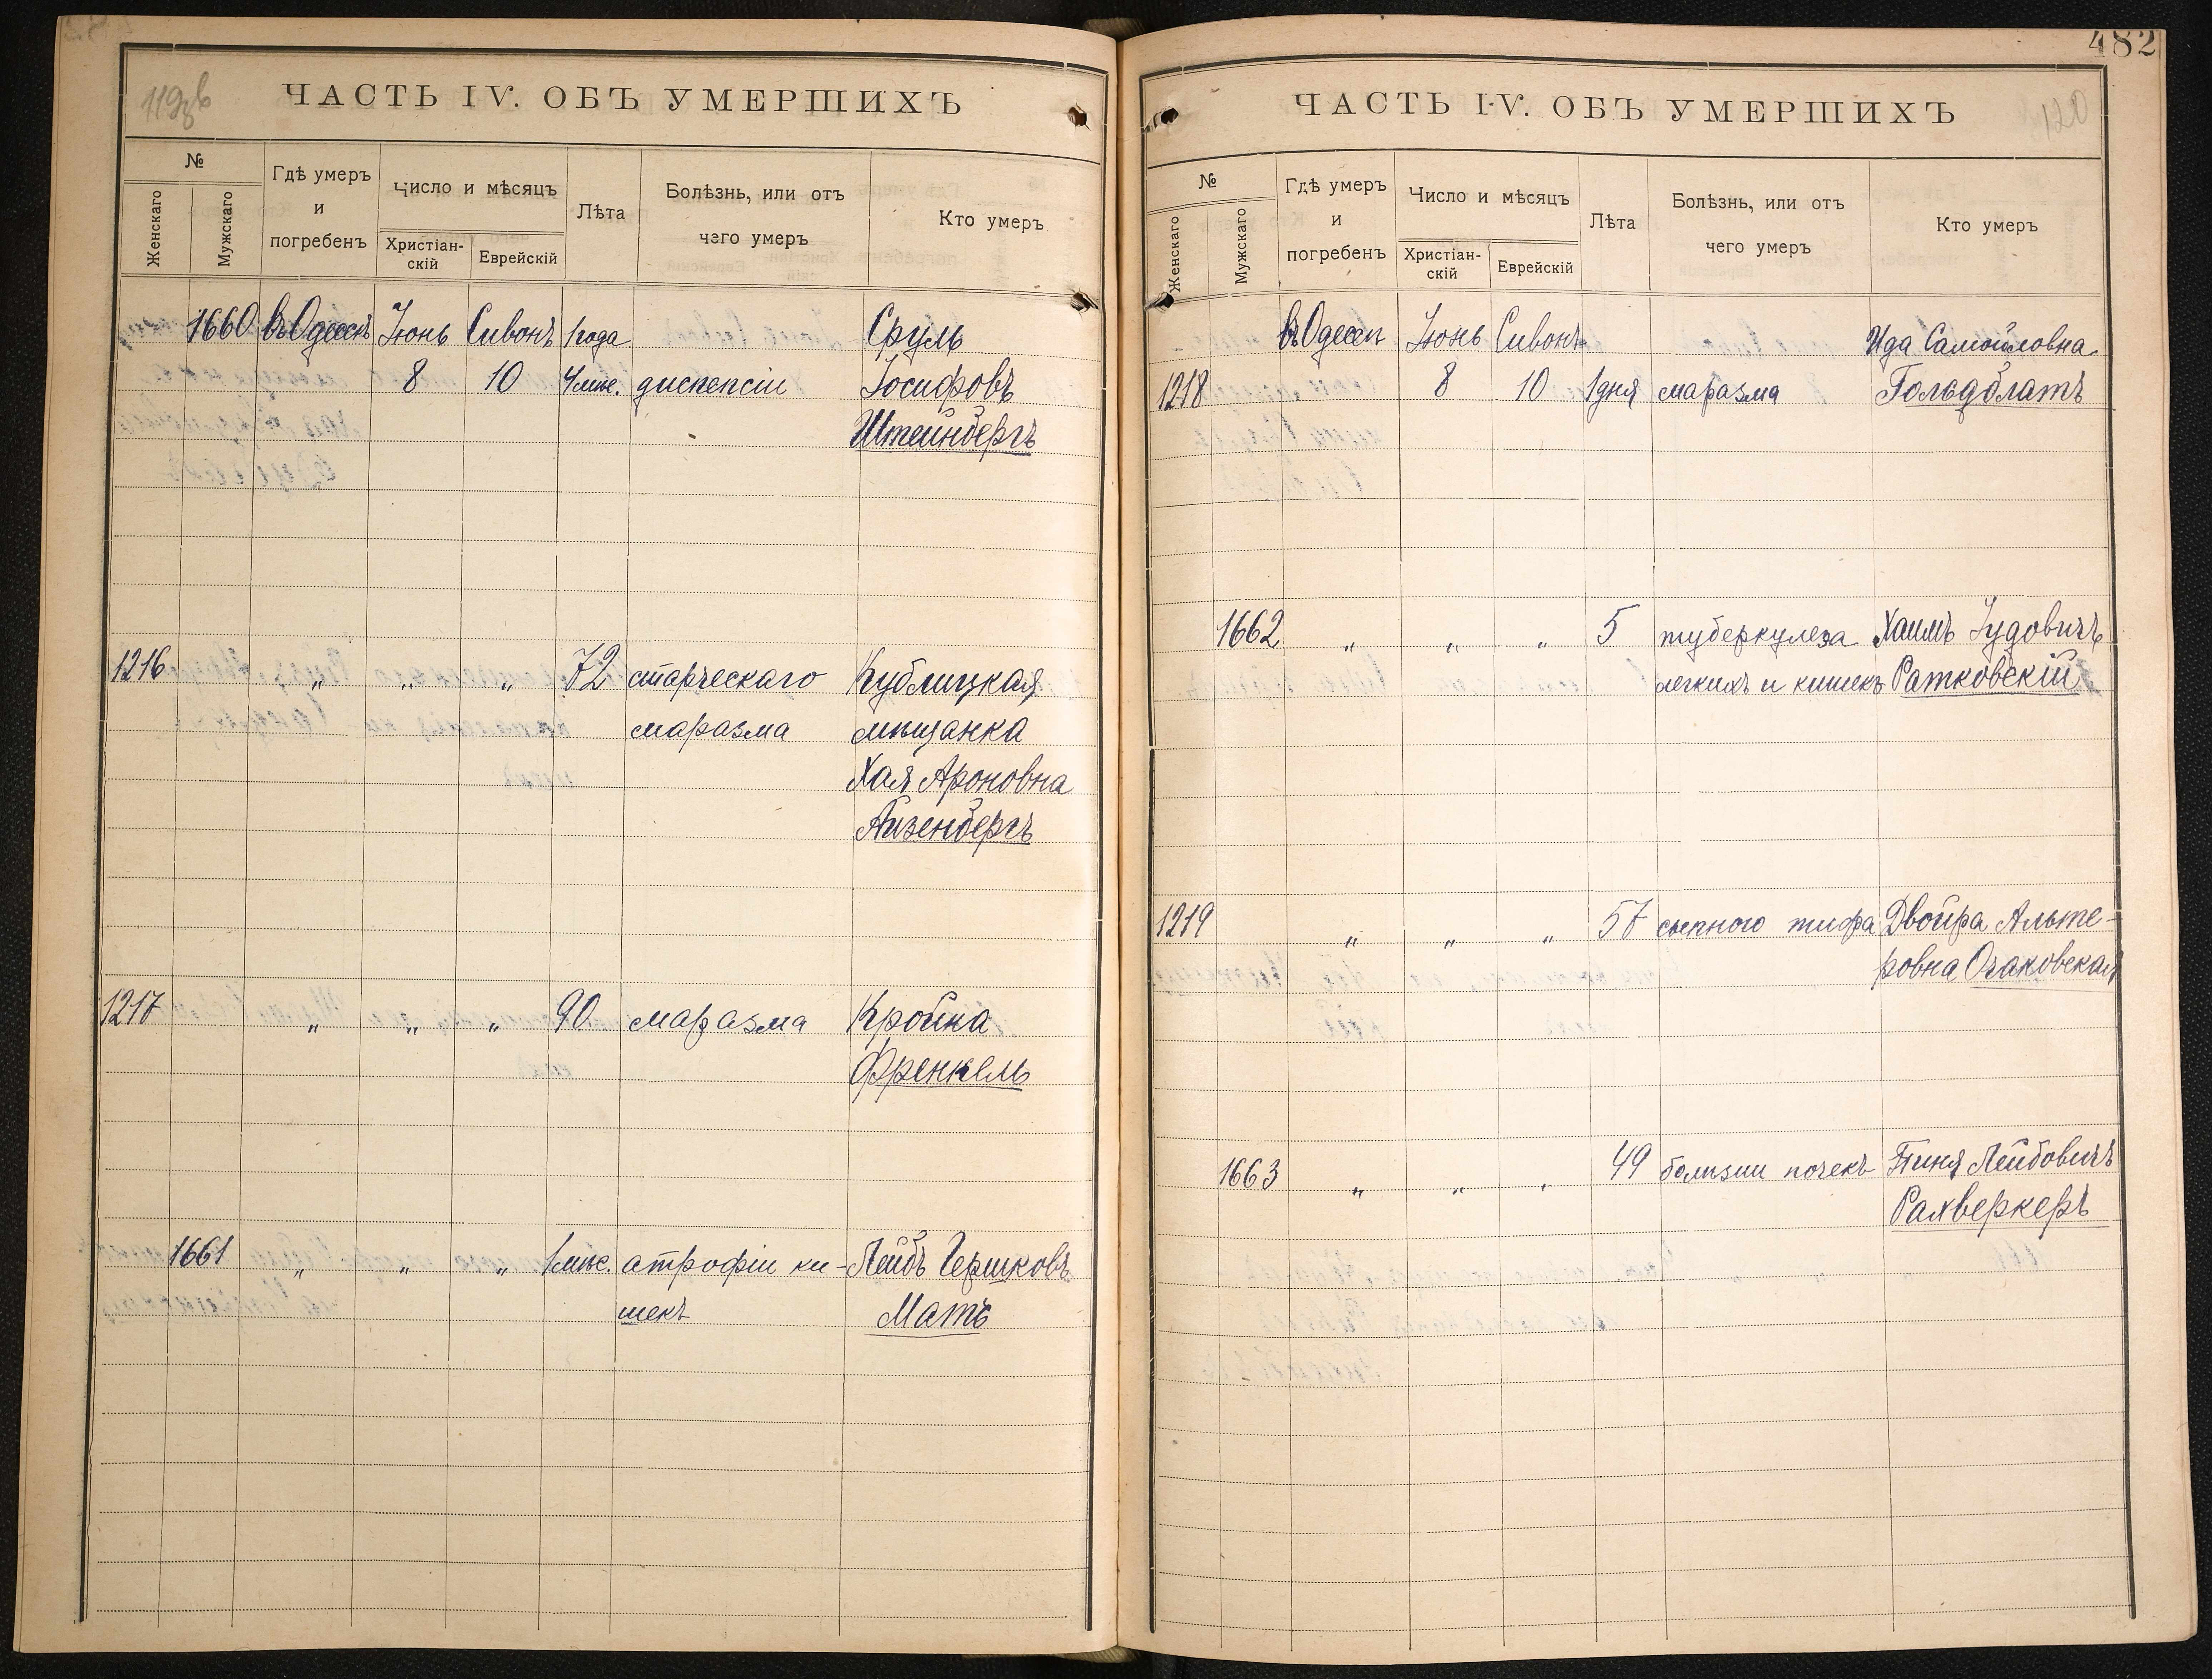 119об
ЧАСТЬ IV. ОБЪ УМЕРШИХЪ
№
Женскаго
Мужскаго
Гдѣ умеръ
и
погребенъ
Число и мѣсяцъ
Христіан-
скій
Еврейскій
Лѣта
Болѣзнь, или отъ
чего умеръ
Кто умеръ
1660 въ Одессѣ Іюнь Сивонъ 1 года Сруль
8 10 4 мѣс. диспепсіи Іосифовъ
Штейнбергъ
1216 " " " 72 старческаго Кублицкая
маразма мѣщанка
Хая Ароновна
Айзенбергъ
1217 " " " 90 маразма Кройна
Френкель
1661 " " " 1 мѣс. атрофіи ки- Лейбъ Гершковъ
шекъ Матъ
482
120
ЧАСТЬ IV. ОБЪ УМЕРШИХЪ
№
Женскаго
Мужскаго
Гдѣ умеръ
и
погребенъ
Число и мѣсяцъ
Христіан-
скій
Еврейскій
Лѣта
Болѣзнь, или отъ
чего умеръ
Кто умеръ
въ Одессѣ Іюнь Сивонъ Ида Самойловна
1218 8 10 1 дня маразма Гольдблатъ
1662 " " " 5 туберкулеза Хаимъ Іудовичъ
легкихъ и кишекъ Ратковскій
1219 " " " 57 сыпного тифа Двойра Альте-
ровна Очаковская
1663 " " " 49 болѣзни почекъ Пиня Лейбовичъ
Рахверкеръ